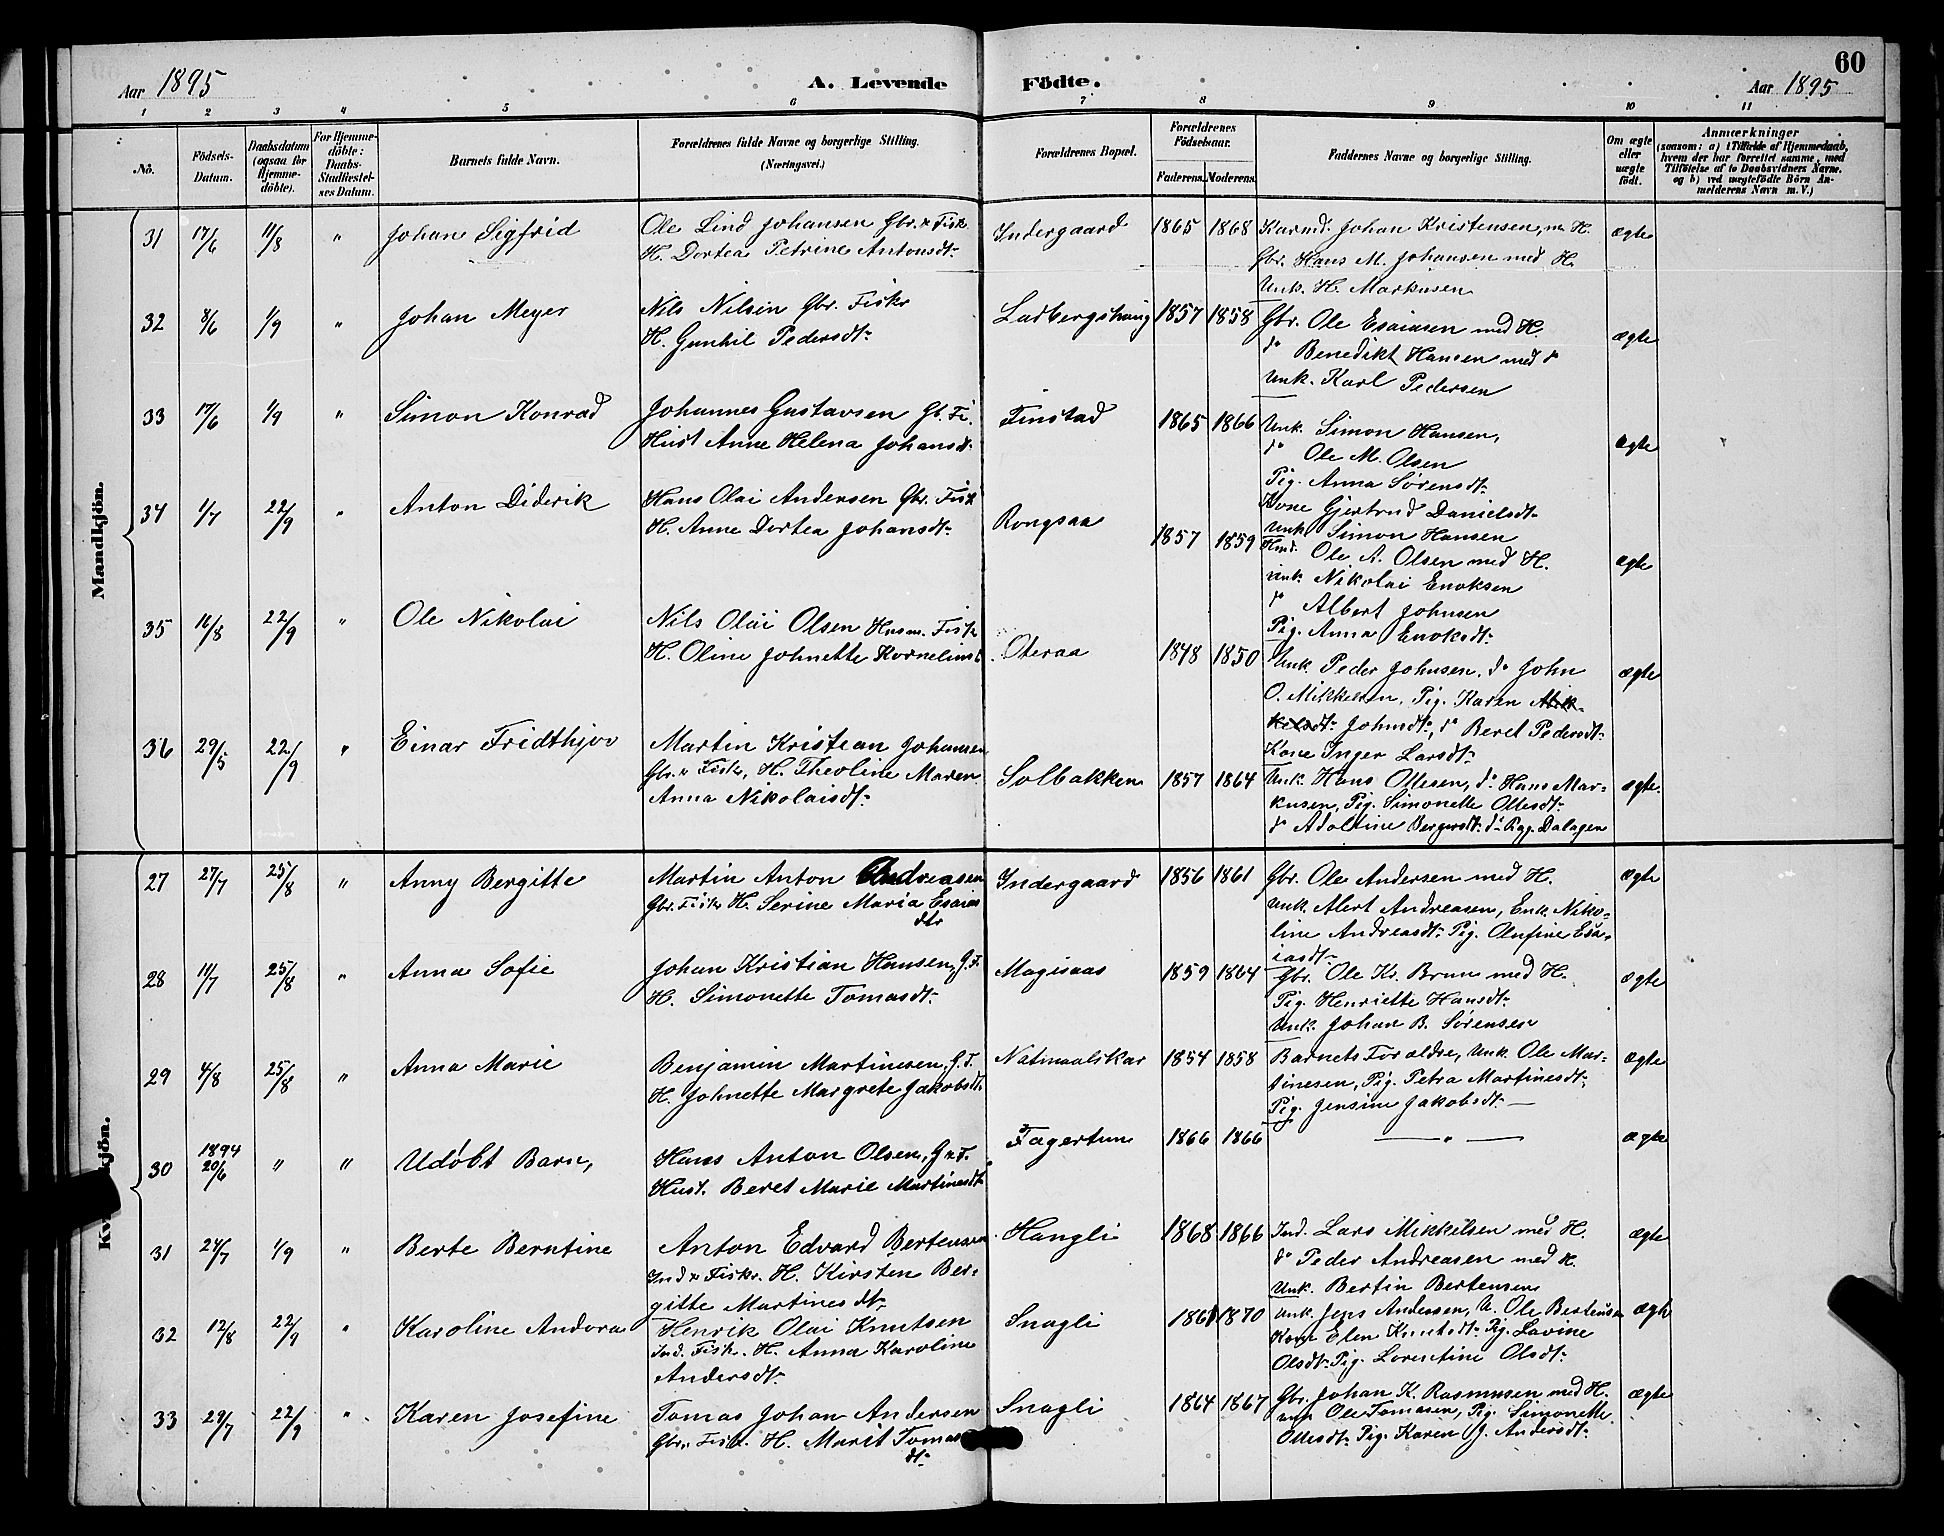 60
Aar 1895
A. Levende Födte.
Aar 1895
1 2 3 4 5 6 7 8 9 10 11
No.
Födsels-Datum.
Daabsdatum (ogsaa for Hjemme-döbte).
For Hjemme-döbte: Daabs-Stadfæstel-ses Datum.
Barnets fulde Navn.
Forældrenes fulde Navne og borgerlige Stilling.
(Næringsvei.)
Forældrenes Bopæl.
Forældrenes Födselsaar.
Faderens. Moderens.
Faddernes Navne og borgerlige Stilling.
Om ægte eller uægte födt.
Anmærkninger
(saasom: a) i Tilfælde af Hjemmedaab,
hvem der har forrettet samme, med
Tilföielse af to Daabsvidners Navne.
og b) ved uægtefödte Börn An-
melderens Navn m. V.)
Mandkjön.
31 17/6 11/8 " Johan Sigfrid
Ole Lind Johansen Gbr. & Fisk
H. Dortea Petrine Antonsdt.
Indergaard 1865 1868
Johan Kristensen, m H.
Gbr. Hans M. Johansen med H.
Unk. H. Markusen
ægte
32 8/6 1/9 " Johan Meyer
Nils Nilsen Gbr. Fiskr
H. Gunhil Pedersdt.
1857 1858
Gbr. Ole Esaiasen med H.
d° Benedikt Hansen med d°
Unk. Karl Pedersen
ægte
33 17/6 1/9 " Simon Konrad
Johannes Gustavsen Gb. Fi.
Hust Anne Helena Johansdt.
Finstad 1865 1866
Unk. Simon Hansen,
d° Ole M. Olsen
Pig. Anna Sørensdt.
Kone Gjertrud Danielsdt.
Unk Simon Hansen
ægte
34 1/7 22/9 " Anton Diderik
Hans Olai Andersen Gbr. Fisk
H. Anne Dortea Johansdt.
Rongsaa 1857 1859
Ole A. Olsen med H.
Unk. Nikolai Enoksen
d° Albert Johnsen
Pig. Anna Enoksdt.
ægte
35 16/8 22/9 " Ole Nikolai
Nils Olai Olsen Husm. Fisk
H. Oline Johnette Kornelius
Oteraa 1848 1850
Unk. Peder Johnsen, d° John
O. Mikkelsen, Pig. Karen Mik-
kelsdt. Johnsdt., d° Beret Pedersdt.
Kone Inger Larsdt.
ægte
36 29/5 22/9 " Einar Fridthjov
Martin Kristian Johansen
Gbr. & Fisker, H. Theoline Maren
Anna Nikolaisdt.
Solbakken 1857 1864
Unk. Hans Ollesen, d° Hans Mar-
kusen, Pig. Simonette Ollesdt.
d° Adoltine Bergersdt. d° Rag. Dalagen
ægte.
Kv kjön.
27 27/7 25/8 " Anny Bergitte
Martin Anton Andreassen
Gbr. Fisk H. Serine Maria Esaias
dtr
Indergaard 1856 1861
Gbr. Ole Andersen med H.
Unk. Alert Andreasen, Enk. Niko-
line Andreasdt. Pig. Olufine Esa-
iasdt.
ægte
28 11/7 25/8 " Anna Sofie
Johan Kristian Hansen, G. F.
H. Simonette Tomasdt.
Magisaas 1859 1864
Gbr. Ole Kr. Brun med H.
Pig. Henriette Hansdt.
Unk. Johan B. Sørensen
ægte
29 4/8 25/8 " Anna Marie
Benjamin Martinesen, G. F.
H. Johnette Margrete Jakobsdt.
Natmaalskar 1854 1858
Barnets Forældre, Unk. Ole Mar-
tinesen, Pig. Petra Martinesdt.
Pig. Jensine Jakobsdt. —
ægte
30 1894 20/6 " " Udøbt Barn,
Hans Anton Olsen, G & F.
Hust. Beret Marie Martinesdt.
Fagertun 1866 1866
— " —
ægte
31 24/7 1/9 " Berte Berntine
Anton Edvard Bertensen
Ind & Fiskr. H. Kirsten Ber-
gitte Martinesdt.
Hangli 1868 1866
Ind. Lars Mikkelsen med H.
d° Peder Andreasen med H.
Unk. Bertin Bertensen
ægte
32 12/8 22/9 " Karoline Andora
Henrik Olai Knutsen
Ind. Fisk. H. Anna Karoline
Andersdt.
Snagli 1861 1870
Unk. Jens Andersen, U. Ole Bertensen
Kone Elen Knutsdt. Pig. Lavine
Olsdt. Pig. Lorentine Olsdt.
ægte
33 29/7 22/9 " Karen Josefine
Tomas Johan Andersen
Gbr. Fisk. H. Marit Tomas
dt.
Snagli 1864 1867
Gbr. Johan K. Rasmusen med H.
Ole Tomasen, Pig. Simonette
Ollesdt. Pig. Karen J. Andersdt.
ægte